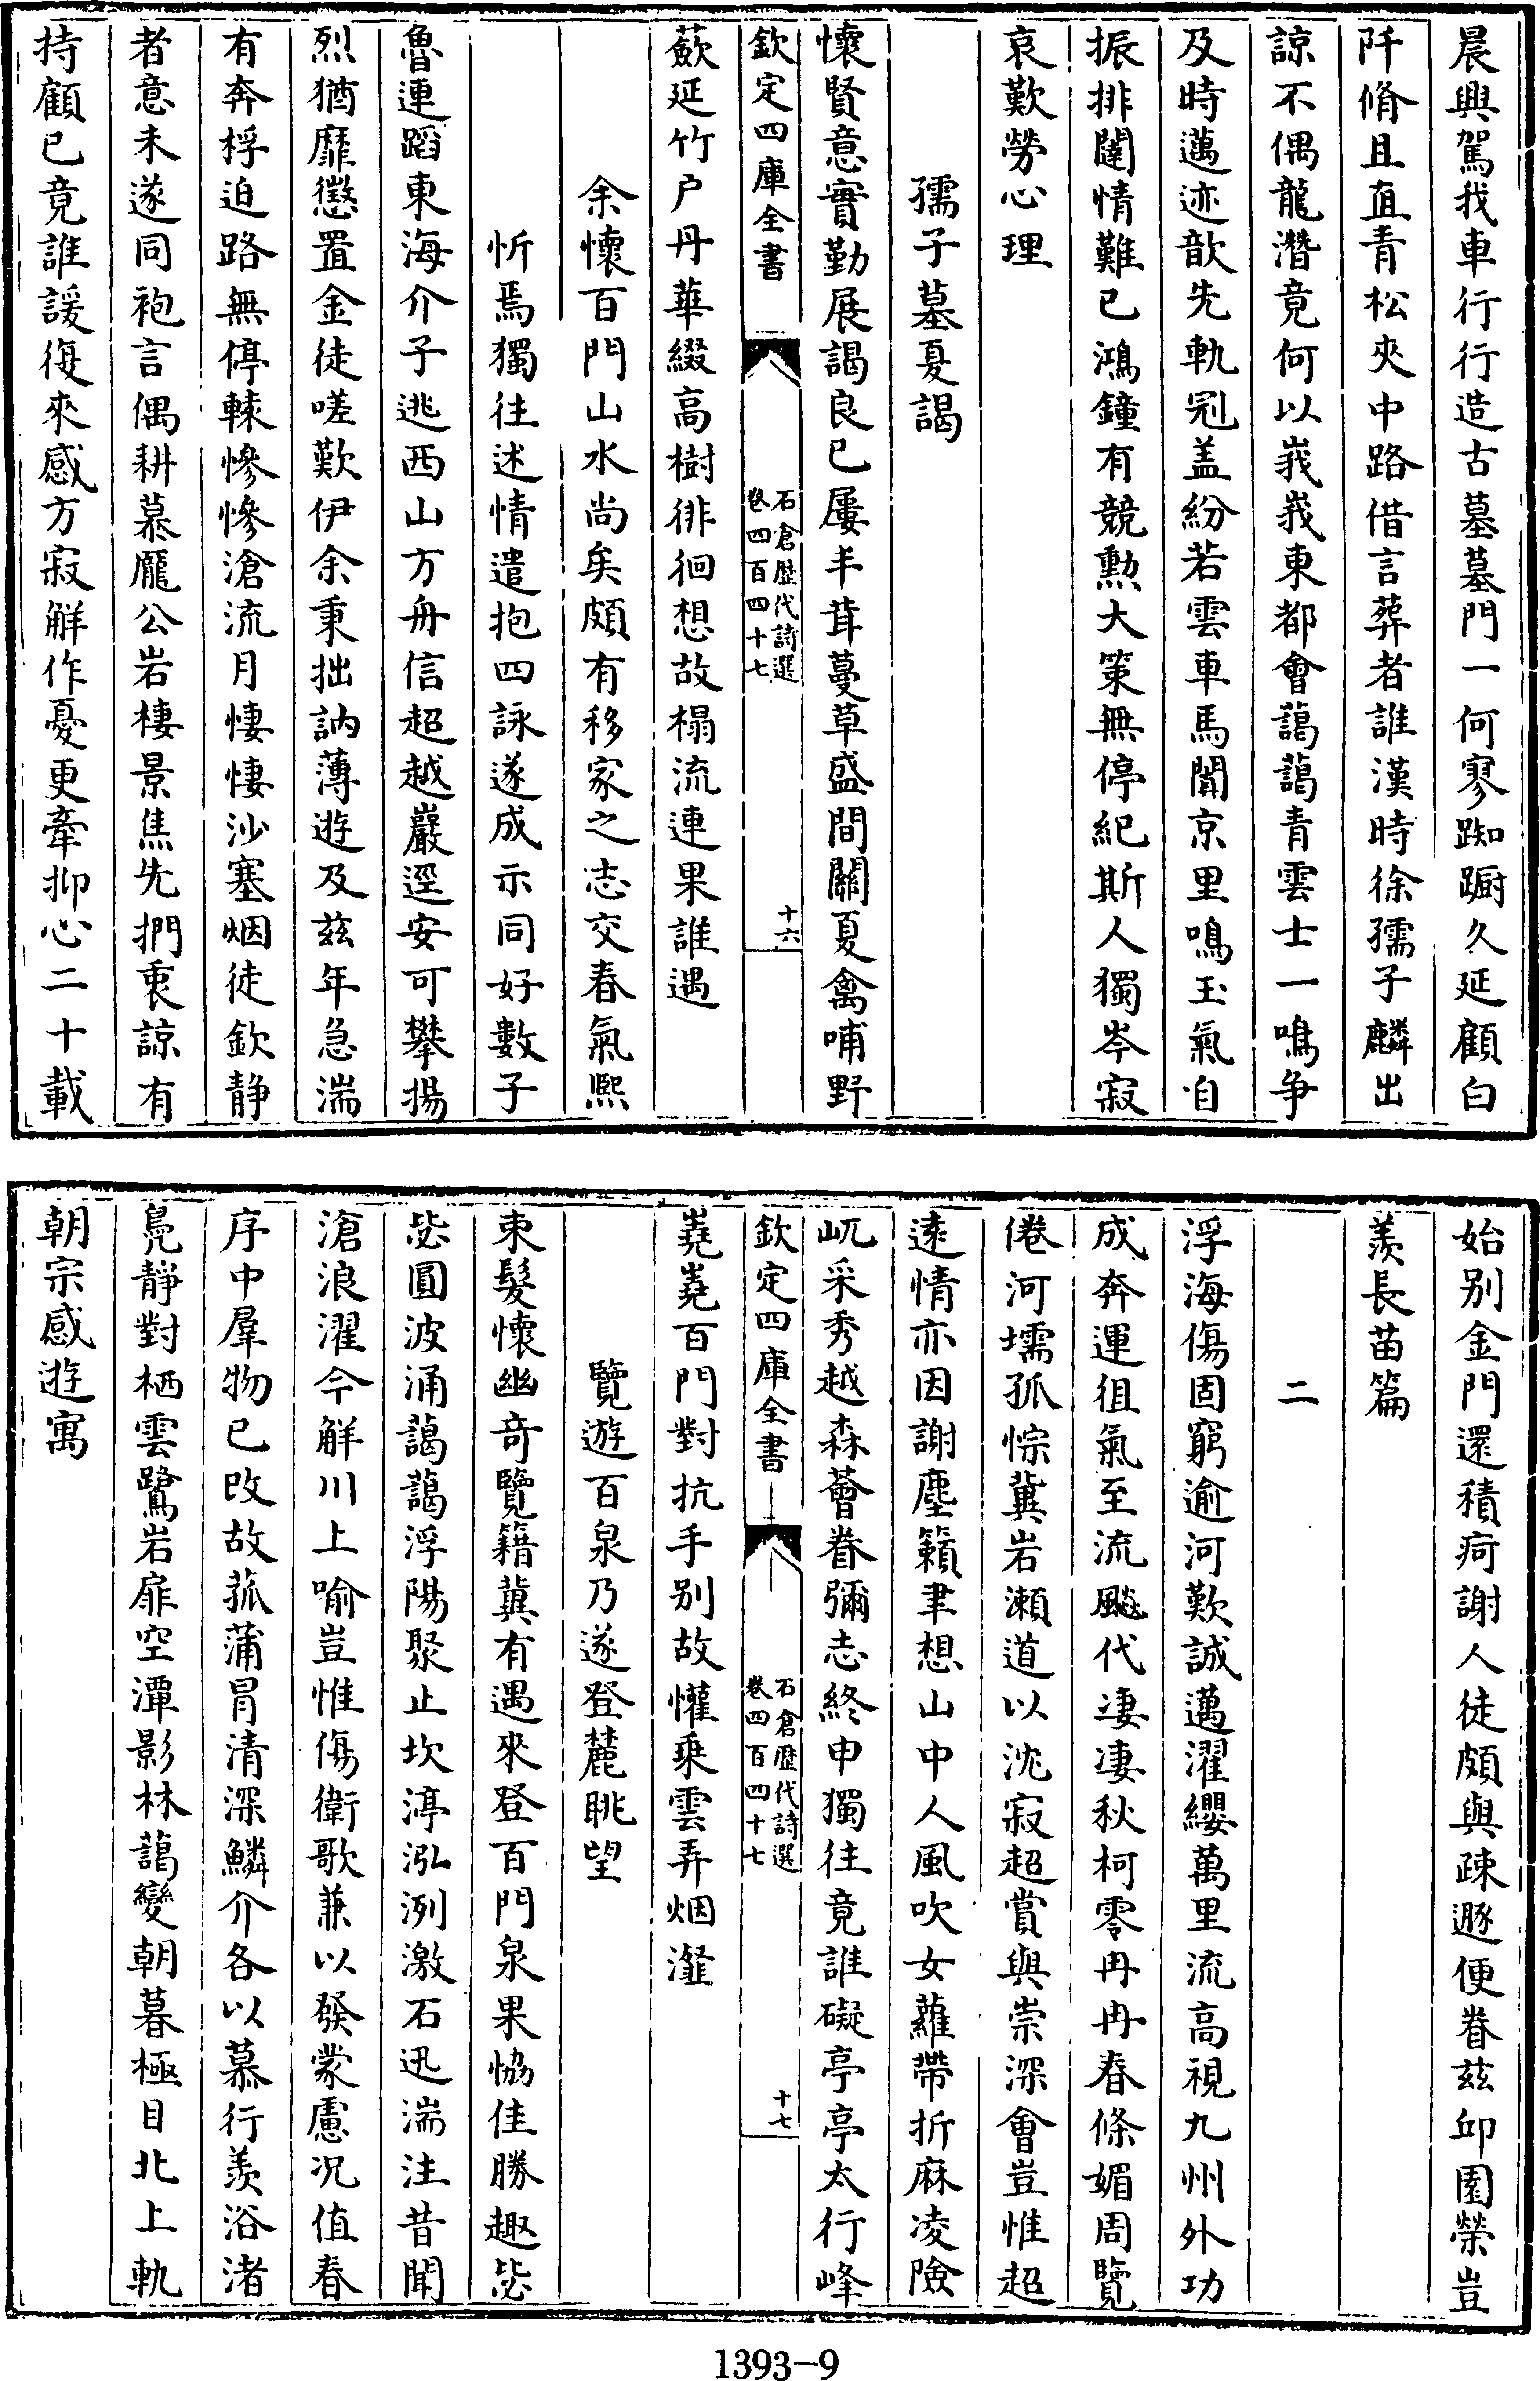 晨興駕我車行行造古墓墓門一何寥踟蹰久延顧白
阡脩且直青松夾中路借言葬者誰漢時徐孺子麟出
諒不偶龍潛竟何以峩峩東都會藹藹青雲士一鳴争
及時邁迹歆先軌冠盖紛若雲車馬闐京里鳴玉氣自
振排闥情難已鴻鐘有競勲大策無停紀斯人獨岑寂
哀歎勞心理
孺子墓夏謁
懷賢意實勤展謁良已屢丰茸蔓草盛間關夏禽哺野
欽定四庫全書
石倉歴代詩選
卷四百四十七
十六
蔌延竹户丹華綴高樹徘徊想故榻流連果誰遇
余懷百門山水尚矣頗有移家之志交春氣熙
忻焉獨往述情遣抱四詠遂成示同好數子
魯連蹈東海介子逃西山方舟信超越巖逕安可攀揚
烈猶靡懲置金徒嗟歎伊余秉拙訥薄遊及兹年急湍
有奔桴迫路無停轅慘慘滄流月悽悽沙塞烟徒欽静
者意未遂同袍言偶耕慕龐公岩棲景焦先捫衷諒有
持顧已竟誰諼復來感方寂解作憂更牽抑心二十載
始别金門還積疴謝人徒頗與疎遯便眷兹邱園榮豈
羨長苗篇
二
浮海傷固窮逾河歎誠邁濯纓萬里流高視九州外功
成奔運徂氣至流颷代凄凄秋柯零冉冉春條媚周覽
倦河壖孤悰冀岩瀬道以沈寂超賞與崇深會豈惟超
逺情亦因謝塵籟聿想山中人風吹女蘿帶折麻凌險
屼采秀越森薈眷彌志終申獨往竟誰礙亭亭太行峰
欽定四庫全書
石倉歴代詩選
卷四百四十七
十七
嶤嶤百門對抗手别故懽乗雲弄烟瀣
覽遊百泉乃遂登麓眺望
束髮懷幽竒覽籍冀有遇來登百門泉果恊佳勝趣毖
毖圓波涌藹藹浮陽聚止坎渟泓洌激石迅湍注昔聞
滄浪濯今解川上喻豈惟傷衛歌兼以發蒙慮况值春
序中羣物已改故菰蒲冐清深鱗介各以慕行羨浴渚
鳬靜對栖雲鷺岩扉空潭影林藹變朝暮極目北上軌
朝宗感遊寓
1393—9